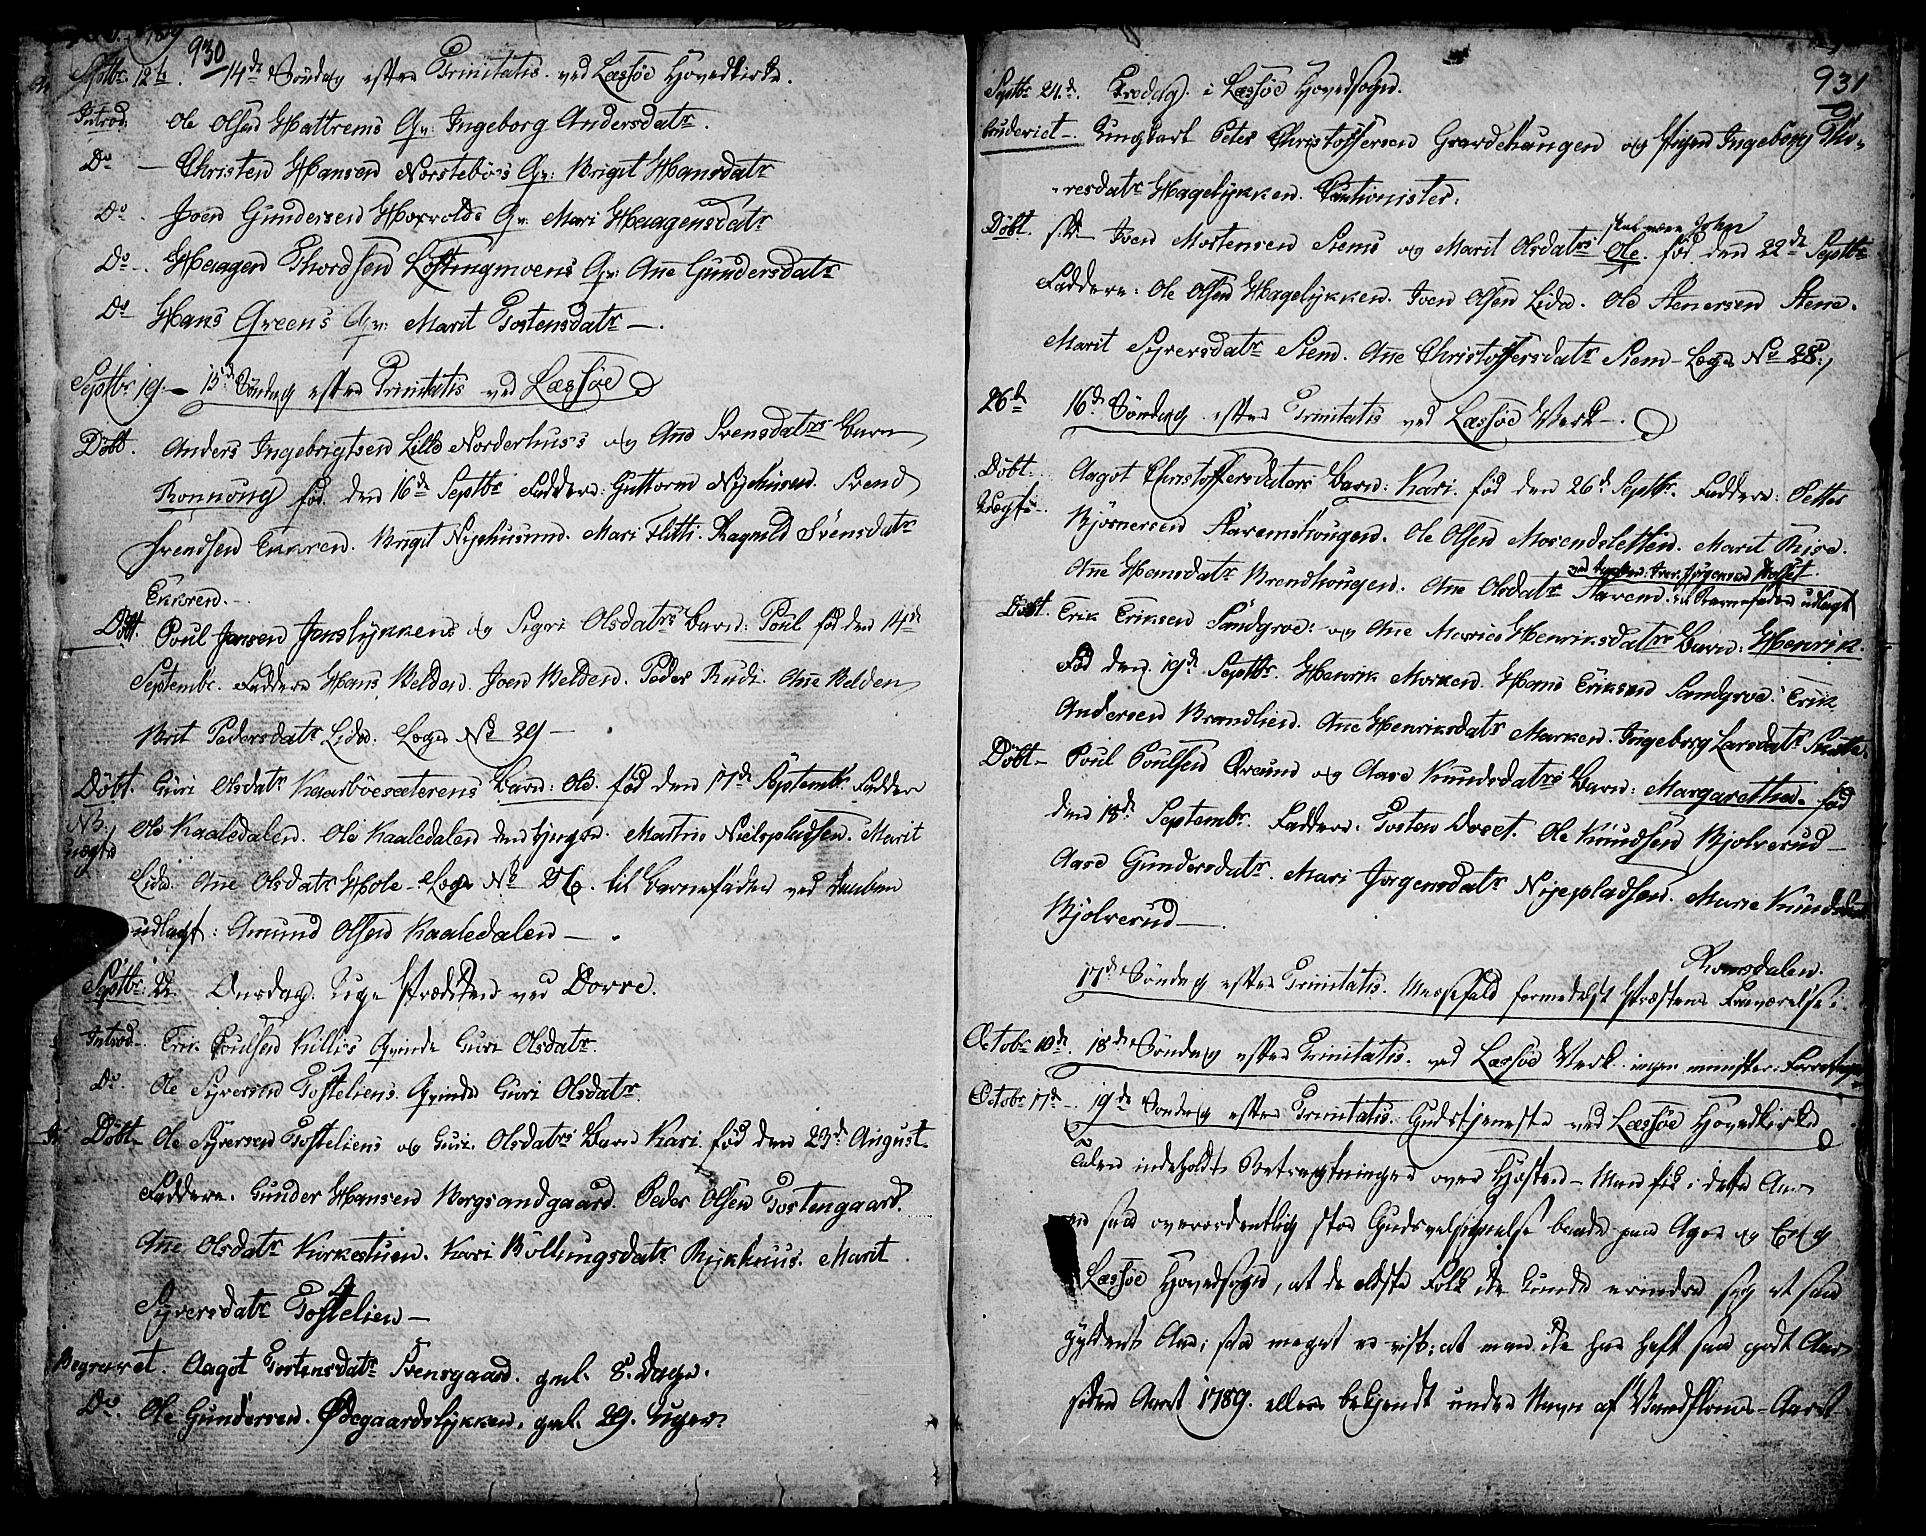 930
Septbr 12te 14de Söndag efter Trinitatis ved Læssöe Hovedkirke.
Introd. Ole Olsen Hattrems Qv: Ingeborg Andersdatr.
Do – Christen Hansen Norsteböes Qv: Brigit Hansdatr
Do. Joen Gundersen Horrolds Qv: Mari Haagensdatr
Do. Haagen Thordsen Löftingmoens Qv: Ane Gundersdatr
Do Hans Qveens Qv: Marit Tostensdatr –.
Septbr 19. – 15de Söndag efter Trinitatis ved Læssöe
Döbt. Anders Ingebrigtsen Lille Norderhus's og Ane Svensdatrs Barn
Ronnöug fød den 16de Septbr Faddere: Guttorm Nyehusen. Svend
Svendsen Ekkren. Brigit Nyehusund. Mari Flitti. Ragnild Svensdatr
Ekkren. –
Döbt. Poul Jensen Jonslykkens og Sigri Olsdatrs Barn: Poul fød den 14de
Septembr. Faddere Hans Belden. Joen Belden. Peder Rudi. Ane Belden
Brit Pedersdatr Lide. Legd No 29 –
Döbt. Guri Olsdatr Kaarböesæterens Barn: Ole. fød den 17de Septembr. Faddere
NB. Ole Kaaledalen. Ole Kaaledalen den yngre. Martin Nielspladsen. Marit
uægte Lide. Ane Olsdatr Hole – Legd No 26. til Barnefader ved Daaben
udlagt: Amund Olsen Kaaledalen –.
Septbr: 22 Onsdag. Uge Prædiken ved Dovre.
Introd. Erik Poulsen Killis Qvinde Guri Olsdatr.
Do. Ole Syversen Tosteliens. Qvinde Guri Olsdatr.
Döbt – Ole Syversen Tosteliens og Guri Olsdatrs Barn Kari fød den 23de August
Faddere. Gunder Hansen Bergsandgaard. Peder Olsen Tostengaard.
Ane Olsdatr Kirkestuen. Kari Böllungsdatr Rykhuus. Marit
Syversdatr Tostelien –
Begravet. Aagot Tostensdatr Svensgaard. gml. 8. Dage.
Do. Ole Gundersen. Ödegaardslykken. gml. 29. Uger.
931
Septbr 24.de Fredag. i Læssöe Hovedsogn.
Ungkarl Peter Christoffersen Gravdehaugen og Pigen Ingeborg Tho-
resdatr Hagelykken. Cautionister.
Döbt. Iven Mortensen Stems og Marit Olsdatrs Ole. fød den 22de Septbr
skal være John
Faddere: Ole Olsen Hagelykken. Iven Olsen Lide. Ole Stenersen Stene.
Marit Syversdatr Stem. Ane Christoffersdatr Stem – Legd No 28.
26de 16de Söndag efter Trinitatis ved Læssöe Verk –.
Döbt. Aagot Christoffersdaters Barn: Kari. fød den 26de Septbr. Faddere: Petter
Uægte. Björnersen Staremshougen. Ole Olsen Mosendsletten. Marit Rise.
Ane Hansdatr Brendhougen. Ane Olsdatr Starem. til Barnefader udlagt
Döbt. Erik Eriksen Sandgroe: og Ane Marie Henriksdatrs Barn: Henrik.
Fød den 19de Septbr. Henrik Morken. Hans Eriksen Sandgroe. Erik
Andersen Brandlien. Ane Henriksdatr Morken. Ingeborg Larsdatr
Döbt – Poul Poulsen Qvaund og Aase Knudsdatrs Barn: Margarethe. fød
den 18de Septembr. Faddere. Tosten Qvaet. Ole Knudsen Bjolverud –
Aase Gundersdatr. Mari Jorgensdatr Nyepladsen. Marie Knudsdatr
Bjolverud –.
17de Söndag efter Trinitatis. Messefald formedelst Præstens Fraværelse i
Romsdalen.
Octobr 10de. 18de Söndag efter Trinitatis. ved Læssöe Verk. ingen minister. Forretninger
Octobr 17de – 19de Söndag efter Trinitatis. Gudstjeneste ved Læssöe Hovedkirke
Talen indeholdt Betragtninger over Høsten – Man fik i dette Aar
en saa overordentlig stor Guds velsignelse baade paa Ager og Eng
i Læssöe Hovedsogn, at de eldste Folk ikke kunde erindre sig et saa
gyldent Aar; saa meget er vist, at man ikke har haft saa godt Aar
siden Aaret 1789. ellers bekjendt under Navn af Vandfloms-Aaret